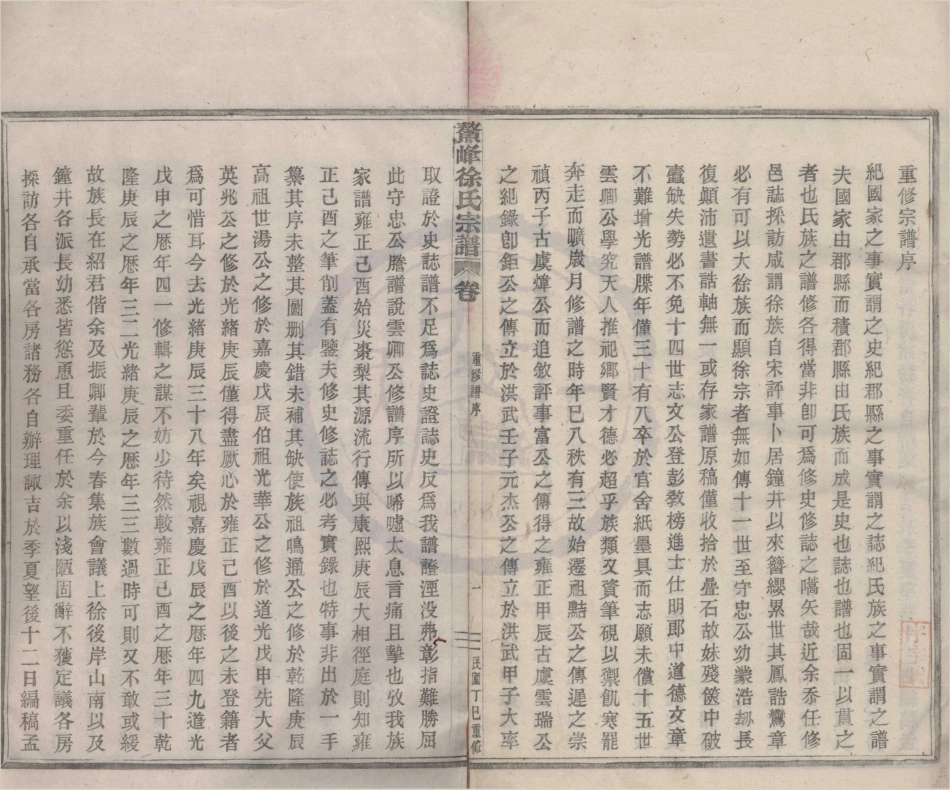 重修宗譜序
紀國家之事實謂之史紀郡縣之事實謂之誌紀氏族之事實謂之譜
夫國家由郡縣而積郡縣由氏族而成是史也誌也譜也固一以貫之
者也氏族之譜修各得當非卽可爲修史修誌之嚆矢哉近余忝任修
邑誌採訪咸謂徐族自宋評事卜居鐘井以來簪纓累世其鳳誥鸞章
必有可以大徐族而顯徐宗者無如傳十一世至守忠公幼業浩刼長
復顚沛遺書誥軸無一或存家譜原稿僅收拾於疊石故妹殘篋中破
蠹缺失勢必不免十四世志文公登彭敎榜進士仕明郎中道德文章
不難增光譜牒年僅三十有八卒於官舍紙墨具而志願未償十五世
雲卿公學究天人推祀鄉賢才德必超乎族類又資筆硯以禦飢寒罷
奔走而曠歲月修譜之時年已八秩有三故始遷祖㸃公之傳遲之崇
禎丙子古虞煒公而追敘評事富公之傳得之雍正甲辰古虞雲瑞公
之紀錄卽鉅公之傳立於洪武壬子元杰公之傳立於洪武甲子大率
鰲峰徐氏宗譜 卷
重修譜序
一
民國丁巳重修
取證於史誌譜不足爲誌史證誌史反爲我譜證湮没弗彰指難勝屈
此守忠公謄譜説雲卿公修譜序所以唏噓太息言痛且摯也攷我族
家譜雍正己酉始災棗梨其源流行傳與康熙庚辰大相徑庭則知雍
正己酉之筆削蓋有鑒夫修史修誌之必考實錄也特事非出於一手
纂其序未整其圖删其錯未補其缺使族祖鳴通公之修於乾隆庚辰
高祖世湯公之修於嘉慶戊辰伯祖光華公之修於道光戊申先大父
英兆公之修於光緒庚辰僅得盡厥心於雍正己酉以後之未登籍者
爲可惜耳今去光緒庚辰三十八年矣視嘉慶戊辰之曆年四九道光
戊申之曆年四一修輯之謀不妨少待然較雍正己酉之曆年三十乾
隆庚辰之曆年三二光緒庚辰之曆年三三數過時可則又不敢或緩
故族長在紹君偕余及振卿輩於今春集族會議上徐後岸山南以及
鐘井各派長幼悉皆慫恿且委重任於余以淺陋固辭不獲定議各房
採訪各自承當各房諸務各自辦理諏吉於季夏望後十二日編稿孟